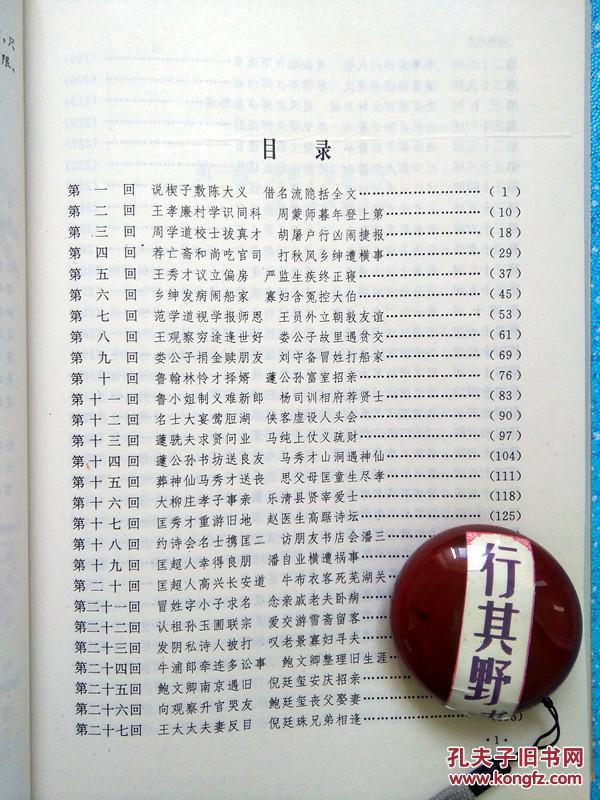 目 录
第 一 回 说楔子敷陈大义 借名流隐括全文……………(1)
第 二 回 王孝廉村学识同科 周蒙师暮年登上第……………(10)
第 三 回 周学道校士拔真才 胡屠户行凶闹捷报……………(18)
第 四 回 荐亡斋和尚吃官司 打秋风乡绅遭横事……………(29)
第 五 回 王秀才议立偏房 严监生疾终正寝……………(37)
第 六 回 乡绅发病闹船家 寡妇含冤控大伯……………(45)
第 七 回 范学道视学报师恩 王员外立朝敦友谊……………(53)
第 八 回 王观察穷途逢世好 娄公子故里遇贫交……………(61)
第 九 回 娄公子捐金赎朋友 刘守备冒姓打船家……………(69)
第 十 回 鲁翰林怜才择婿 蘧公孙富室招亲……………(76)
第十一回 鲁小姐制义难新郎 杨司训相府荐贤士……………(83)
第十二回 名士大宴莺脰湖 侠客虚设人头会……………(90)
第十三回 蘧駪夫求贤问业 马纯上仗义疏财……………(97)
第十四回 蘧公孙书坊送良友 马秀才山洞遇神仙……………(104)
第十五回 葬神仙马秀才送丧 思父母匡童生尽孝……………(111)
第十六回 大柳庄孝子事亲 乐清县贤宰爱士……………(118)
第十七回 匡秀才重游旧地 赵医生高踞诗坛……………(125)
第十八回 约诗会名士携匡二 访朋友书店会潘三
第十九回 匡超人幸得良朋 潘自业横遭祸事
第二十回 匡超人高兴长安道 牛布衣客死芜湖关
第二十一回 冒姓字小子求名 念亲戚老夫卧病
第二十二回 认祖孙玉圃联宗 爱交游雪斋留客
第二十三回 发阴私诗人被打 叹老景寡妇寻夫
第二十四回 牛浦郎牵连多讼事 鲍文卿整理旧生涯
第二十五回 鲍文卿南京遇旧 倪廷玺安庆招亲
第二十六回 向观察升官哭友 鲍廷玺丧父娶妻
第二十七回 王太太夫妻反目 倪廷珠兄弟相逢
·1·
行其野
孔夫子旧书网
www.kongfz.com